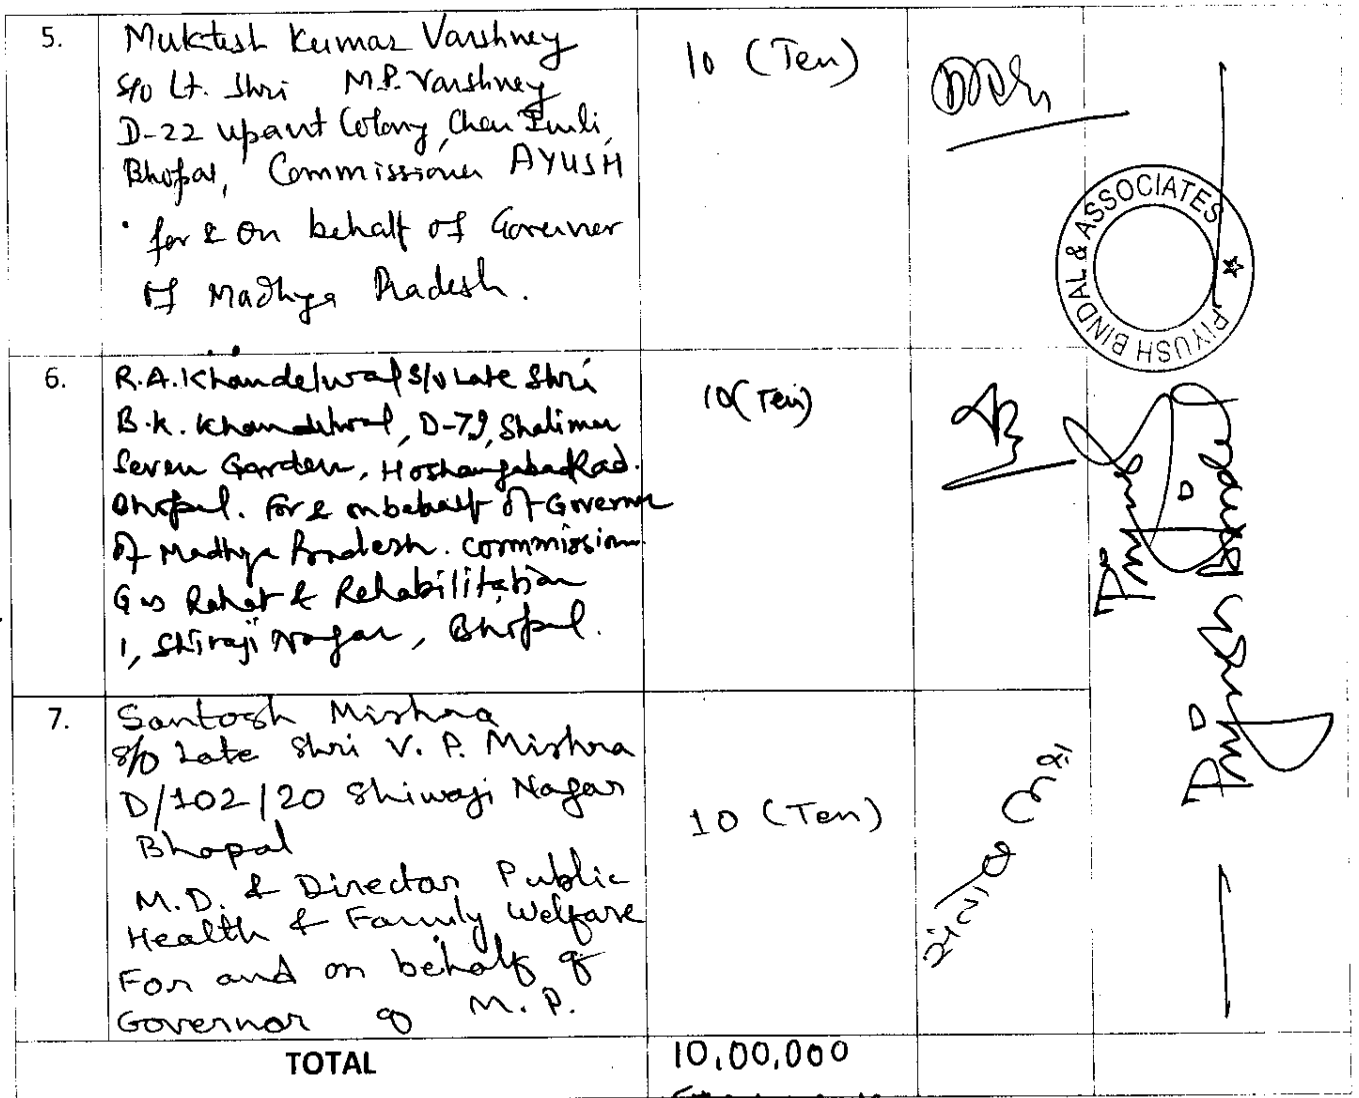 5.
Muktesh Kumar Varshney
S/o Lt. Shri M.P. Varshney
D-22 upant Colony, Char Imli,
Bhopal, Commissioner AYUSH
for & on behalf of Governor
of Madhya Pradesh.
10 (Ten)
PIYUSH BINDAL & ASSOCIATES
6.
R.A. Khandelwal S/o Late Shri
B.K. Khandelwal, D-79, Shalimar
Seven Garden, Hoshangabad Road.
Bhopal. For & on behalf of Governor
of Madhya Pradesh. Commission
Gas Rahat & Rehabilitation
1, Shivaji Nagar, Bhopal.
10 (Ten)
Piyush Bindal
7.
Santosh Mishra
S/o Late Shri V. P. Mishra
D/102/20 Shivaji Nagar
Bhopal
M.D. & Director Public
Health & Family Welfare
For and on behalf of
Governor of M.P.
10 (Ten)
TOTAL
10,00,000